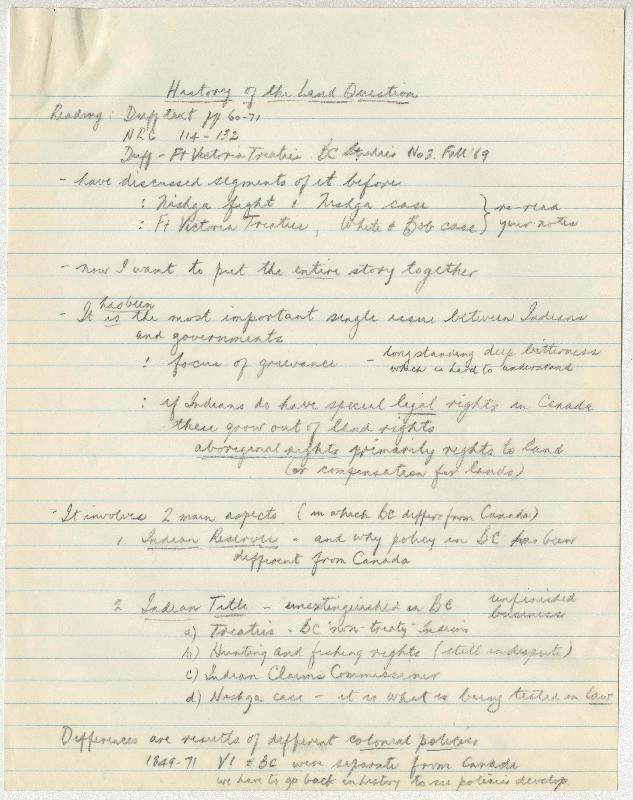 History of the Land Question
Reading: Duff text pp 60-71
NRC 114-132
Duff - Ft Victoria Treaties BC Studies No 3 Fall '69
- have discussed segments of it before
: Nishga fight & Nishga case } re-read
: Ft Victoria Treaties, White & Bob case } your notes
- now I want to put the entire story together
has been
- It is the most important single issue between Indians
and governments
: focus of grievance - longstanding deep bitterness
which is hard to understand
: if Indians do have special legal rights in Canada
these grow out of land rights
aboriginal rights primarily rights to land
(or compensation for lands)
- It involves 2 main aspects (in which BC differs from Canada)
1. Indian Reserves - and why policy in BC has been
different from Canada
2 Indian Title - unextinguished in BC unfinished
business
a) Treaties - BC "non-treaty" Indians
b) Hunting and fishing rights (still in dispute)
c) Indian Claims Commissioner
d) Nishga case - it is what is being tested in law
Differences are results of different colonial policies
1849-71 VI & BC were separate from Canada
we have to go back in history to see policies develop